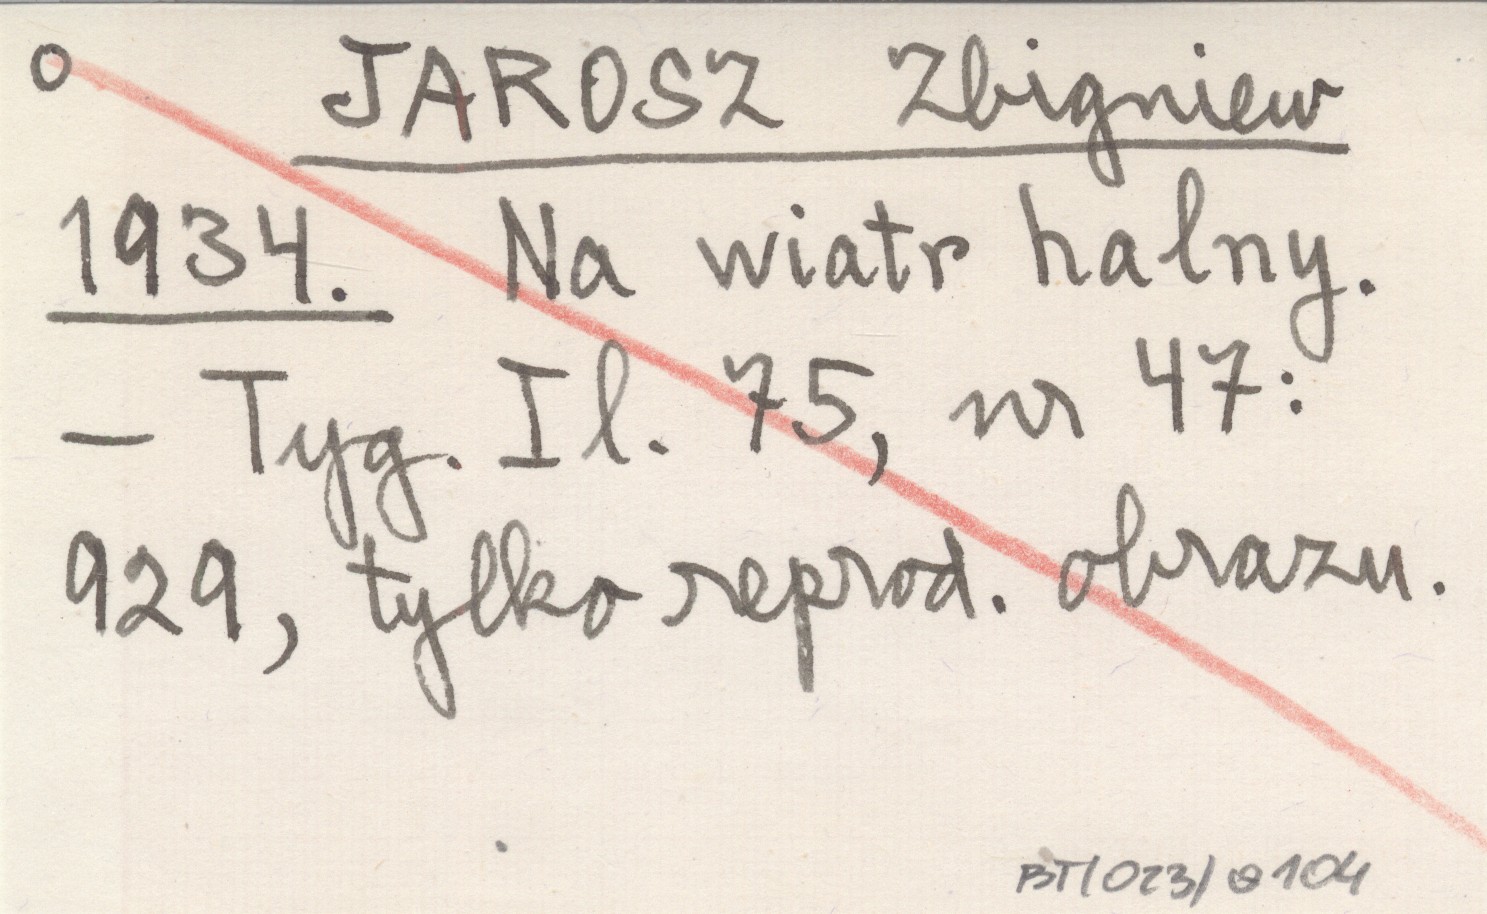 o JAROSZ Zbigniew
1934. Na wiatr halny.
– Tyg. Il. 75, nr 47:
929, tylko reprod. obrazu.
BT/023/ 104